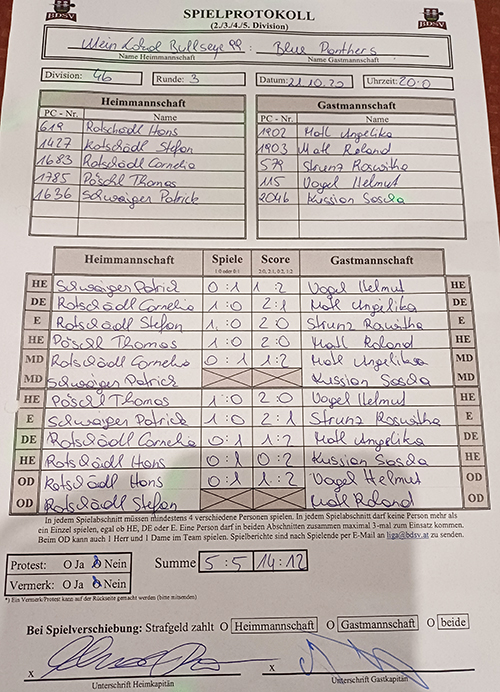 BDSV SPIELPROTOKOLL BDSV
(2./3./4./5. Division)
Mein Lokal Bullseye 99 : Blue Panthers
Name Heimmannschaft Name Gastmannschaft
Division: 4b Runde: 3 Datum: 21.10.20 Uhrzeit: 20:0
Heimmannschaft
PC - Nr. Name
619 Rotschädl Hans
1427 Rotschädl Stefan
1683 Rotschädl Cornelia
1785 Pöschl Thomas
1636 Schwaiger Patrick
Gastmannschaft
PC - Nr. Name
1902 Matl Angelika
1903 Matl Roland
579 Strunz Roswitha
115 Vogel Helmut
2046 Kussian Sascha
Heimmannschaft Spiele Score Gastmannschaft
1:0 oder 0:1 2:0, 2:1, 0:2, 1:2
HE Schwaiger Patrick 0:1 1:2 Vogel Helmut HE
DE Rotschädl Cornelia 1:0 2:1 Matl Angelika DE
E Rotschädl Stefan 1:0 2:0 Strunz Roswitha E
HE Pöschl Thomas 1:0 2:0 Matl Roland HE
MD Rotschädl Cornelia 0:1 1:2 Matl Angelika MD
MD Schwaiger Patrick Kussian Sascha MD
HE Pöschl Thomas 1:0 2:0 Vogel Helmut HE
E Schwaiger Patrick 1:0 2:1 Strunz Roswitha E
DE Rotschädl Cornelia 0:1 1:2 Matl Angelika DE
HE Rotschädl Hans 0:1 0:2 Kussian Sascha HE
OD Rotschädl Hans 0:1 1:2 Vogel Helmut OD
OD Rotschädl Stefan Matl Roland OD
In jedem Spielabschnitt müssen mindestens 4 verschiedene Personen spielen. In jedem Spielabschnitt darf keine Person mehr als
ein Einzel spielen, egal ob HE, DE oder E. Eine Person darf in beiden Abschnitten zusammen maximal 3-mal zum Einsatz kommen.
Beim OD kann auch 1 Herr und 1 Dame im Team spielen. Spielberichte sind nach Spielende per E-Mail an liga@bdsv.at zu senden.
Protest: O Ja O Nein Summe 5:5 14:12
Vermerk: O Ja O Nein
*) Ein Vermerk/Protest kann auf der Rückseite gemacht werden (bitte mitsenden)
Bei Spielverschiebung: Strafgeld zahlt O Heimmannschaft O Gastmannschaft O beide
x x
Unterschrift Heimkapitän Unterschrift Gastkapitän